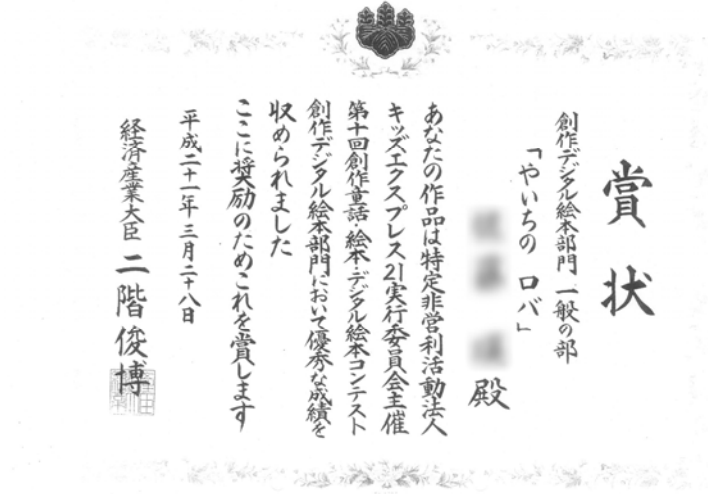 賞状
創作デジタル絵本部門 一般の部
「やいちの ロバ」
殿
あなたの作品は特定非営利活動法人
キッズエクスプレス21実行委員会主催
第十回創作童話・絵本・デジタル絵本コンテスト
創作デジタル絵本部門において優秀な成績を
収められました
ここに奨励のためこれを賞します
平成二十一年三月二十八日
経済産業大臣 二階俊博